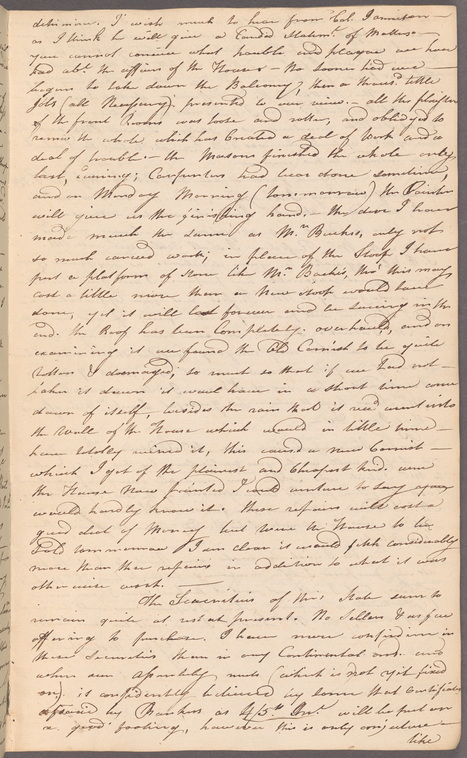 determine. I wish much to hear from Col. Jamieson —
as I think he will give a Candid Statemt. of Matters. —
you cannot conceive what trouble and plague we have
had abt. the affairs of the House — No sooner had we
begun to take down the Balcony, then a thousd. little
Jobs (all Necessary) presented to our view. — all the plaister
of the front Rooms was loose and rotten, and obliged to
renew the whole which has Created a deal of work and a
deal of trouble — the Masons finished the whole only
last evening; Carpenters had been done sometime,
and on Monday Morning (tom-morrow) the Painter
will give us the finishing hand. — the door I have
made much the same as Mr. Baches, only not
so much carved work; in place of the Stoop I have
put a platform of Stone like Mr. Baches, tho' this may
cost a little more than a New stoop would have
done, yet it will last forever and be saving in the
end. the Roof has been Completely overhauled, and on
examining it we found the Old Cornish to be quite
rotten & damaged, so much so that if we had not
taken it down it would have in a short time come
down of itself, besides the rain that it used went into
the Wall of the House which would in little time
have totally ruined it, this caused a new Cornish —
which I got of the plainest and Cheapest kind. were
the House Now painted I will venture to say you
would hardly know it. these repairs will cost a
good deal of Money but were the House to be
Sold tommorrow I am clear it would fetch considerably
more than the repairs in addition to what it was
otherwise worth. —
The Securities of this State seem to
remain quite at rest at present. No Sellers & as few
offering to purchase. I have more confidence in
these Securities than in any Continental ones. and
when our Assembly meets (which is not yet fixed
on) it is confidently believed by some that Certificates
will be put on
a good footing, however this is only conjecture —
like